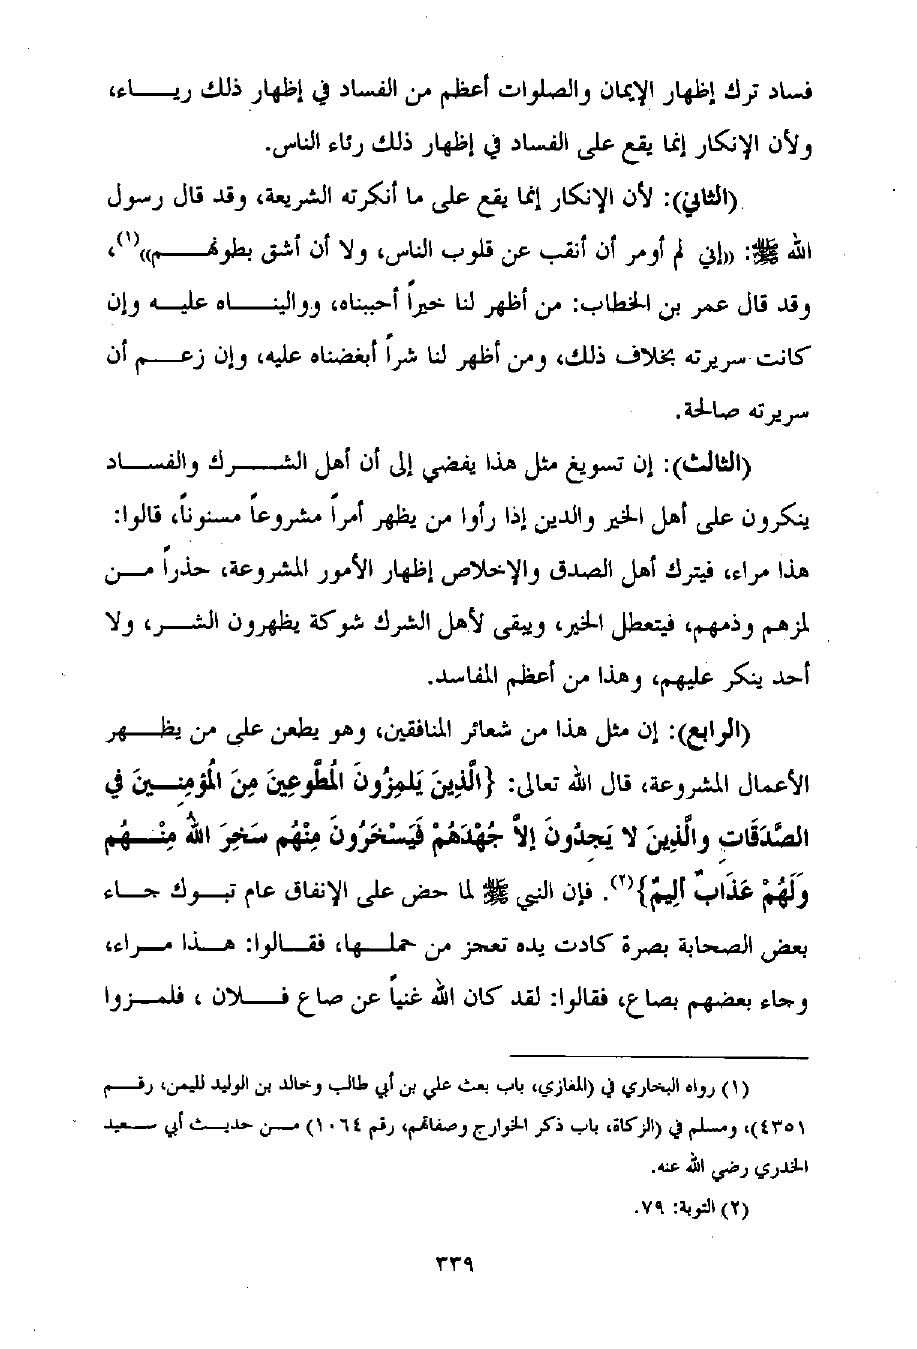 فساد ترك إظهار الإيمان والصلوات أعظم من الفساد في إظهار ذلك رياء،
ولأن الإنكار إنما يقع على الفساد في إظهار ذلك رئاء الناس.
(الثاني): لأن الإنكار إنما يقع على ما أنكرته الشريعة، وقد قال رسول
الله ﷺ: ((إني لم أومر أن أنقب عن قلوب الناس، ولا أن أشق بطونهم))(١)،
وقد قال عمر بن الخطاب: من أظهر لنا خيراً أحببناه، وواليناه عليه وإن
كانت سريرته بخلاف ذلك، ومن أظهر لنا شراً أبغضناه عليه، وإن زعم أن
سريرته صالحة.
(الثالث): إن تسويغ مثل هذا يفضي إلى أن أهل الشرك والفساد
ينكرون على أهل الخير والدين إذا رأوا من يظهر أمراً مشروعاً مسنوناً، قالوا:
هذا مراء، فيترك أهل الصدق والإخلاص إظهار الأمور المشروعة، حذراً من
لمزهم وذمهم، فيتعطل الخير، ويبقى لأهل الشرك شوكة يظهرون الشر، ولا
أحد ينكر عليهم، وهذا من أعظم المفاسد.
(الرابع): إن مثل هذا من شعائر المنافقين، وهو يطعن على من يظهر
الأعمال المشروعة، قال الله تعالى: {الَّذِينَ يَلمِزُونَ المُطَّوعِينَ مِنَ المُؤمِنِينَ في
الصَّدَقَاتِ والَّذِينَ لا يَجِدُونَ إلاَّ جُهْدَهُمْ فَيَسْخَرُونَ مِنْهُم سَخِرَ اللهُ مِنْهُم
وَلَهُمْ عَذَابٌ أَلِيمٌ}(٢). فإن النبي ﷺ لما حض على الإنفاق عام تبوك جاء
بعض الصحابة بصرة كادت يده تعجز من حملها، فقالوا: هذا مراء،
وجاء بعضهم بصاع، فقالوا: لقد كان الله غنياً عن صاع فلان ، فلمزوا
(١) رواه البخاري في (المغازي، باب بعث علي بن أبي طالب وخالد بن الوليد لليمن، رقم
٤٣٥١)، ومسلم في (الزكاة، باب ذكر الخوارج وصفاتهم، رقم ١٠٦٤) من حديث أبي سعيد
الخدري رضي الله عنه.
(٢) التوبة: ٧٩.
٣٣٩